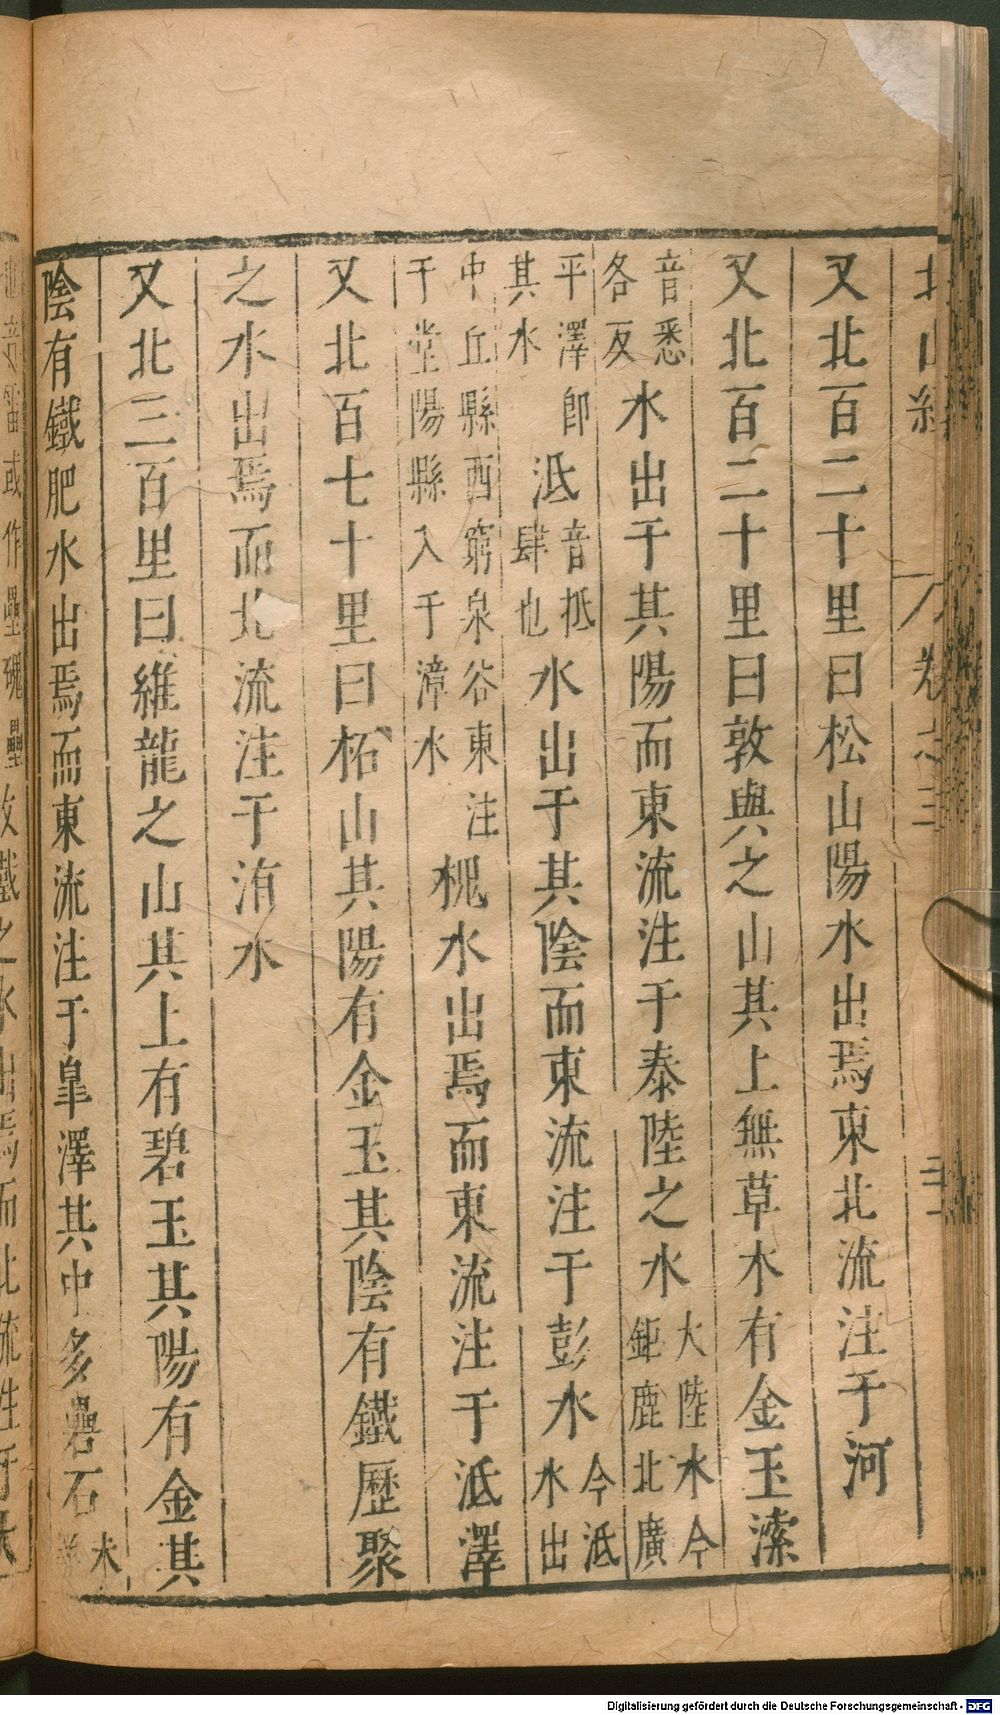 北山經 卷之三
又北百二十里曰松山陽水出焉東北流注于河
又北百二十里曰敦與之山其上無草木有金玉溹
音悉各反水出于其陽而東流注于泰陸之水大陸水今鉅鹿北廣
平澤即其水泜音抵肆也水出于其陰而東流注于彭水今泜水出
中丘縣西窮泉谷東注于堂陽縣入于漳水槐水出焉而東流注于泜澤
又北百七十里曰柘山其陽有金玉其陰有鐵歷聚
之水出焉而北流注于洧水
又北三百里曰維龍之山其上有碧玉其陽有金其
陰有鐵肥水出焉而東流注于皐澤其中多礨石未
Digitalisierung gefördert durch die Deutsche Forschungsgemeinschaft - DFG